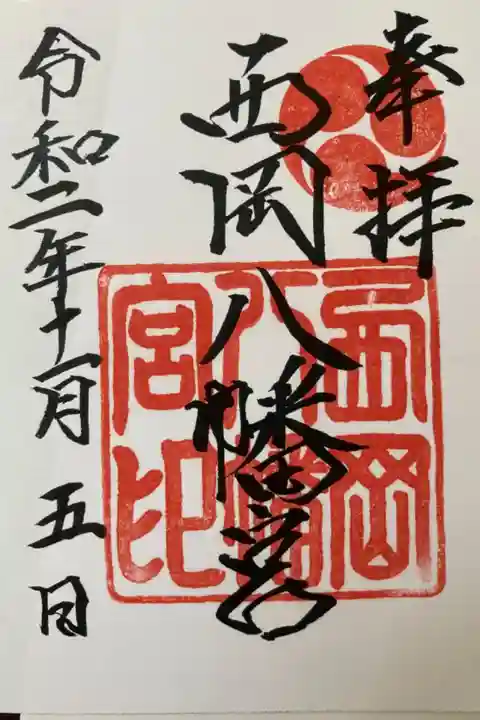 奉拝
西岡八幡宮
西岡
八幡
宮印
令和二年十一月五日